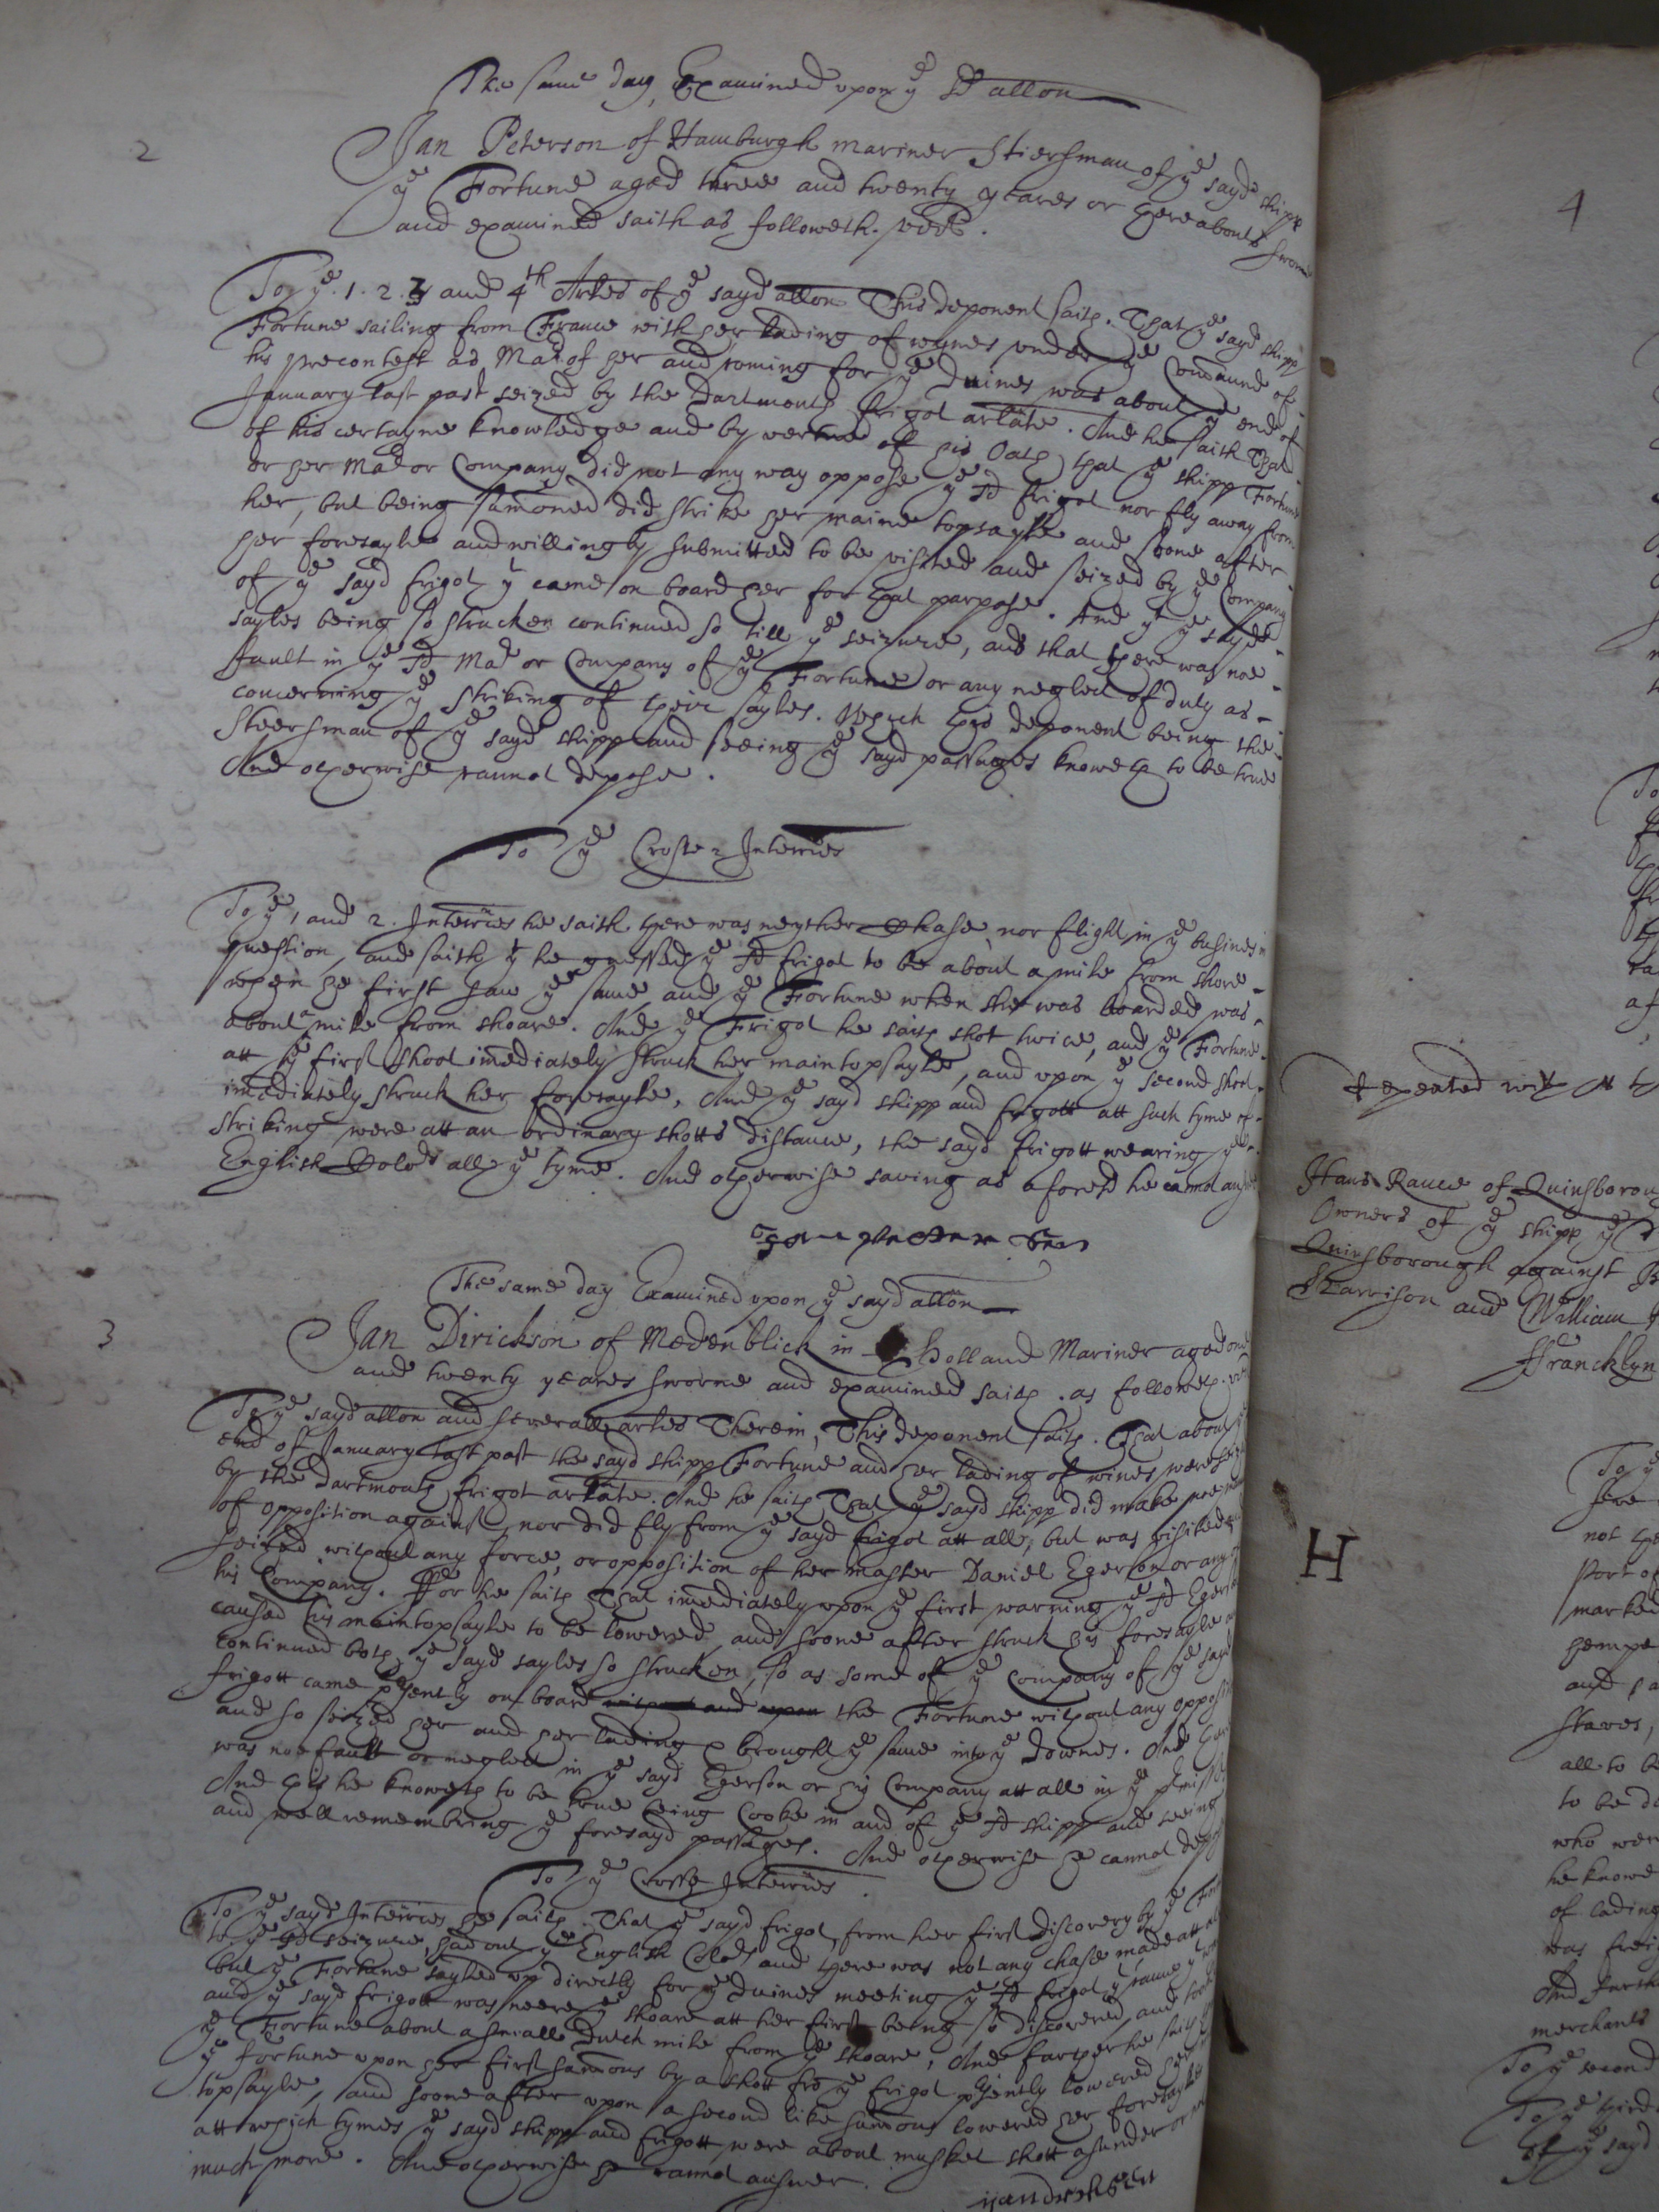 The same day Examined upon ye sd allon
2
Jan Peterson of Hamburgh mariner Stiersman of ye sayd shipp
ye Fortune aged three and twenty yeares or hereabouts sworne
and examined saith as followeth. vizt.
To ye. 1. 2. 3 and 4th Arles of ye sayd allon This deponent saith. That ye sayd shipp
Fortune sailing from France with her lading of wynes under ye Command of
his precontest as Mar. of her and coming for ye Duines was about ye end of
January last past seized by the Dartmouth frigot arlate. And he saith That
of his certayne knowledge and by vertue of his Oath that ye shipp Fortune
or her Mar or Company did not any way oppose ye sd frigot nor fly away from
her, but being sumoned did strike her maine topsayle and soone after
her foresayle and willingly submitted to be visited and seized by ye Company
of ye sayd frigot yt came on board her for that purpose. And yt ye sayd
sayles being so strucken continued so till ye seizure, and that there was noe
fault in ye sd Mar or Company of ye Fortune or any neglect of duty as
concerning ye striking of their sayles. Which this deponent being the
Steersman of ye sayd shipp and seeing ye sayd passages knoweth to be true
And otherwise cannot depose.
To ye Crosse Interries
To ye 1 and 2. Interries he saith there was neyther Chase, nor flight in ye busines in
question, and saith yt he guessed ye sd frigot to be about a mile from shore
when he first saw ye same and ye Fortune when she was boarded was
about a mile from shoare. And ye Frigot he saith shot twice, and ye Fortune
att ye first shoot imediately struck her maintopsayle, and upon ye second shoot
imediately struck her foresayle, And ye sayd shipp and frigott att such tyme of
striking were att an ordinary shotts distance, the sayd frigott wearing ye
English Colors all ye tyme. And otherwise saving as aforesd he cannot answer
The same day Examined upon ye sayd allon
3
Jan Dirickson of Medenblick in Holland Mariner aged one
and twenty yeares sworne and examined saith. as followeth. vizt
To ye sayd allon and severall arles Therein, This deponent saith. That about ye
end of January last past the sayd shipp Fortune and her lading of wines were seized
by the Dartmouth frigot arlate. And he saith That ye sayd shipp did make noe
of opposition against, nor did fly from ye sayd frigot att all, but was visited and
seized without any force, or opposition of her master Daniel Egerson or any of
his Company. Ffor he saith That imediately upon ye first warning ye sd Egerson
caused his maintopsayle to be lowered and soone after struck his foresayle and
continued both ye sayd sayles so strucken, so as some of ye Company of ye sayd
frigott came presently on board the Fortune without any opposition
and so seized her and her lading & brought ye same into ye Downes. And there
was noe fault or neglect in ye sayd Egerson or his Company att all in ye pmisses
And this he knoweth to be true being Cooke in and of ye sd shipp and seeing
and well remembring ye foresayd passages. And otherwise he cannot depose
To ye Crosse Interries.
To ye sayd Interries he saith. That ye sayd frigot, from her first discovery by ye Fortune
to ye sd seizure, had out ye English Colors and there was not any chase made att all
but ye Fortune sayled up directly for ye Duines meeting ye sd frigot yt came
and ye sayd frigott was neere ye shoare att her first being so discovered, and
ye Fortune about a smalle Dutch mile from ye shoare, And farther he saith
ye Fortune upon her first sumons by a shott fro ye frigot psently lowered her
topsayle, and soone after upon a second like sumons lowered her foresayle
att which tymes ye sayd shipp and frigott were about musket shott asunder or not
much more. And otherwise he cannot answer.
4
Hans Rauce of Quinsborough
Owners of ye shipp ye
Quinsborough against
Harrison and William
Francklyn
H
To ye
not
Port of
marked
and
staves,
all to be
to be
who were
he knowe
of lading
was
And furth
merchants
To ye second
To ye third
of ye sayd